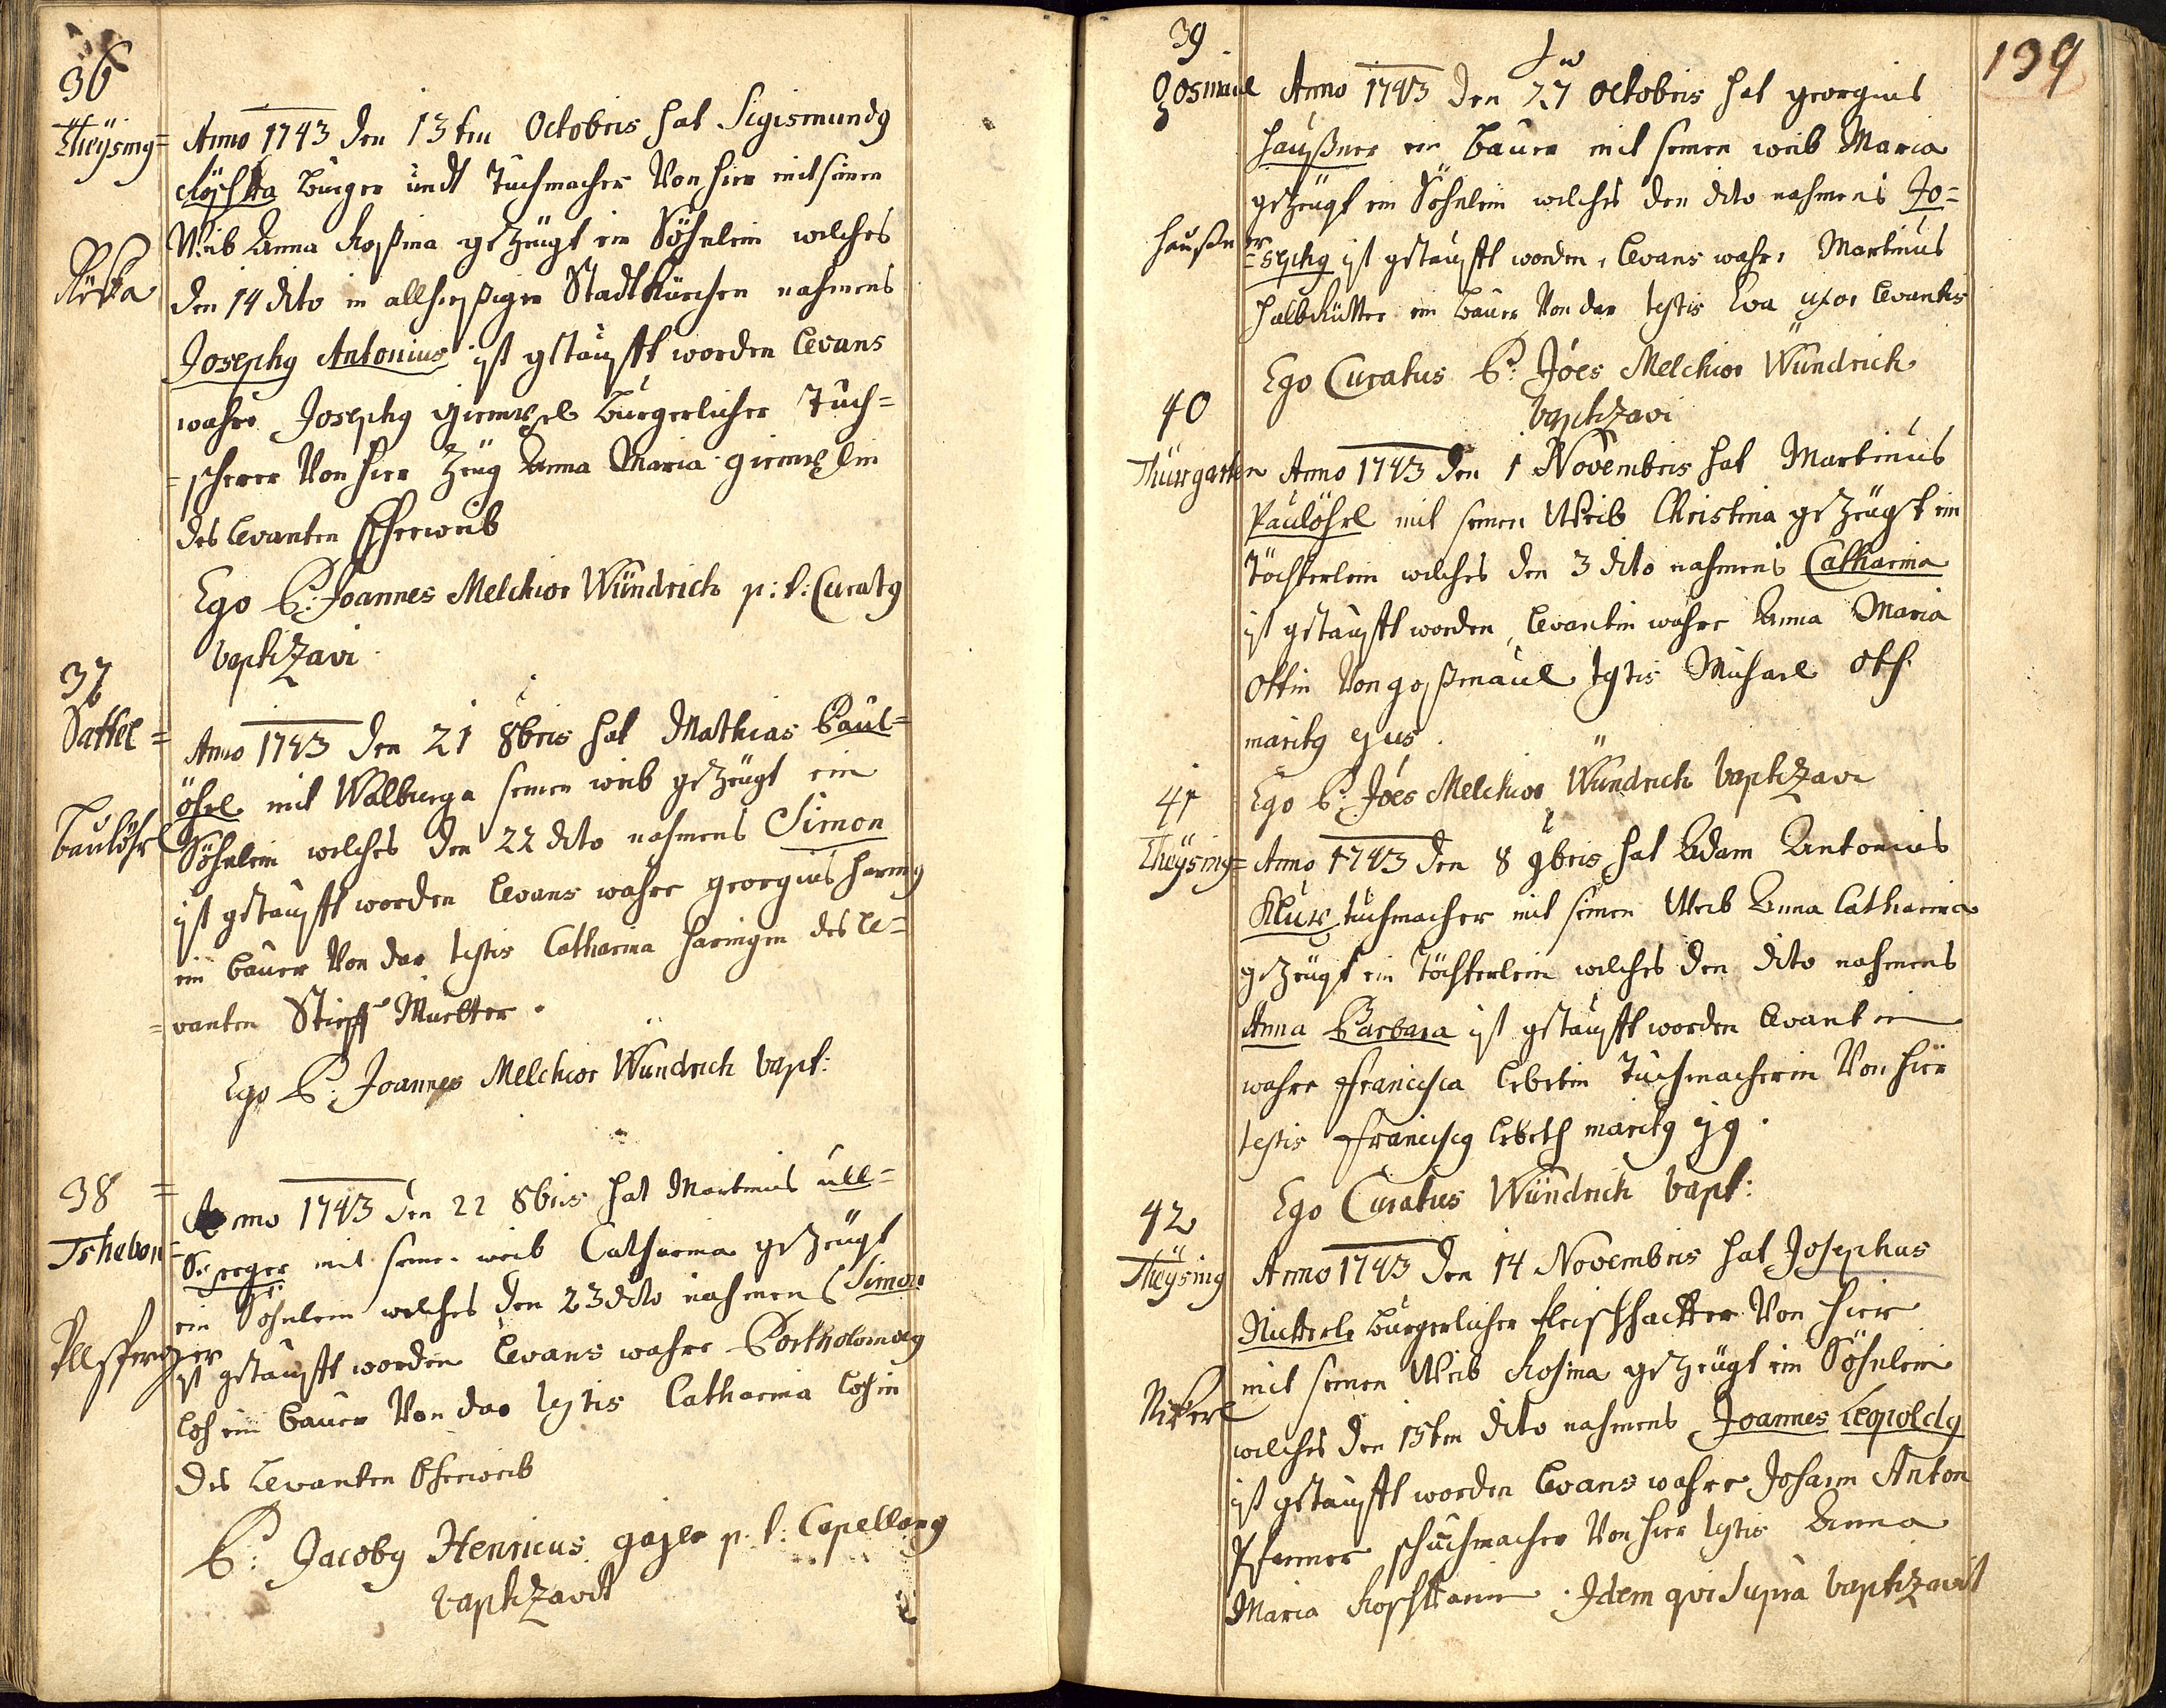 36
Theÿsing=
Anno 1743 den 13ten Octobris hat Sigismundg
Röschka burger undt Tuchmacher Von hier mit seinen
Weib Anna Rossina gezeugt ein Söhnlein welches
Röska
den 14 dito in allhiessiger Stadt Kürchen nahmens
Josephg Antonius ist getaufft worden Levans
wahre Josephg burgerlicher Tuch=
=scherer Von hier Zeug Anna Maria
des Levanten Eheweib
Ego P: Joannes Melchior Wündrich p: t: Curatg
baptizavi
37
Sattel=
Anno 1743 den 21 8bris hat Mathias Paul=
öhrl mit Walburga seinen weib gezeugt ein
Paulöhrl
Söhnlein welches den 22 dito nahmens Simon
ist getaufft worden Levans wahre georgius haring
ein bauer Von dar testis Catharina haringin des Le=
=vanten Stieff Muetter.
Ego P: Joannes Melchior Wündrich bapt:
38 =
Tshebon=
Anno 1743 den 22 8bris hat Martinus ull=
Sperger mit seinen weib Catharina gezeugt
ein Söhnlein welches den 23 dito nahmens Simon
Ullsperger
ist getaufft worden Levans wahre Bortholomaeg
Loh ein bauer Von dar testis Catharina Lohin
des Levanten Eheweib
P: Jacobg Henricus p: t: Capellang
baptizavit
139
39
gosmaul
Anno 1743 den 27 Octobris hat georgius
haussner ein bauer mit seinen weib Maria
gezeugt ein Söhnlein welches den dito nahmens Jo=
haussner
=sephg ist getaufft worden, Levans wahre Martinus
halbRütter ein bauer Von dar testis Eva uxor Levantis
Ego Curatus P: Jöes Melchior Wündrich
baptizavi
40
Thurgarten
Anno 1743 den 1 Novembris hat Martinus
Paulöhrl mit seinen Weib Christina gezeugt ein
Töchterlein welches den 3 dito nahmens Catharina
ist getaufft worden, Levantin wahre Anna Maria
Ottin Von gossmaul testis Michael Oth
maritg ejus.
Ego P: Jöes Melchior Wündrich baptizavi
41
Theÿsing=
Anno 1743 den 8 9bris hat Adam Antonius
tuchmacher mit seinen Weib Anna Catharina
gezeugt ein Töchterlein welches den dito nahmens
Anna Barbara ist getaufft worden Levantin
wahre Francisca Tuchmacherin Von hier
testis Franciscg maritg ejg.
Ego Curatus Wündrich bapt:
42
Theÿsing
Anno 1743 den 14 Novembris hat Josephus
Nickerle burgerlicher fleischhackter Von hier
mit seinen Weib Rosina gezeugt ein Söhnlein
Nikerl
welches den 15ten dito nahmens Joannes Leopoldg
ist getaufft worden Levans wahre Johann Anton
schuchmacher Von hier testis Anna
Maria Idem qvi supra baptizavit